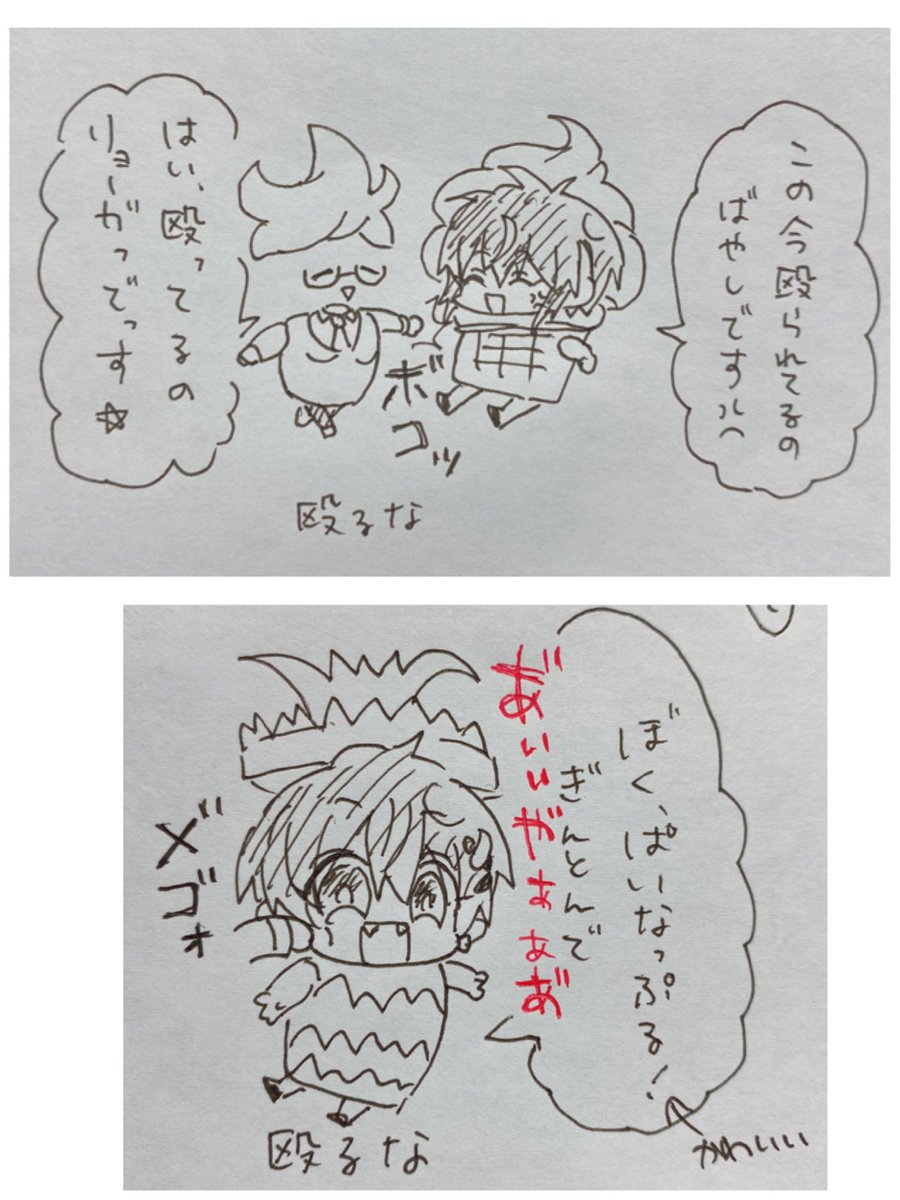 この今殴られてるの
ばやしです
はい、殴ってるの
リョーガっでっす☆
ボコッ
殴るな
ぼく、ぱいなっぷる！
かわいい
ぎんとんで
あ゛ぃぃや゛ぁぁあ゛
メ゛ゴォ
殴るな